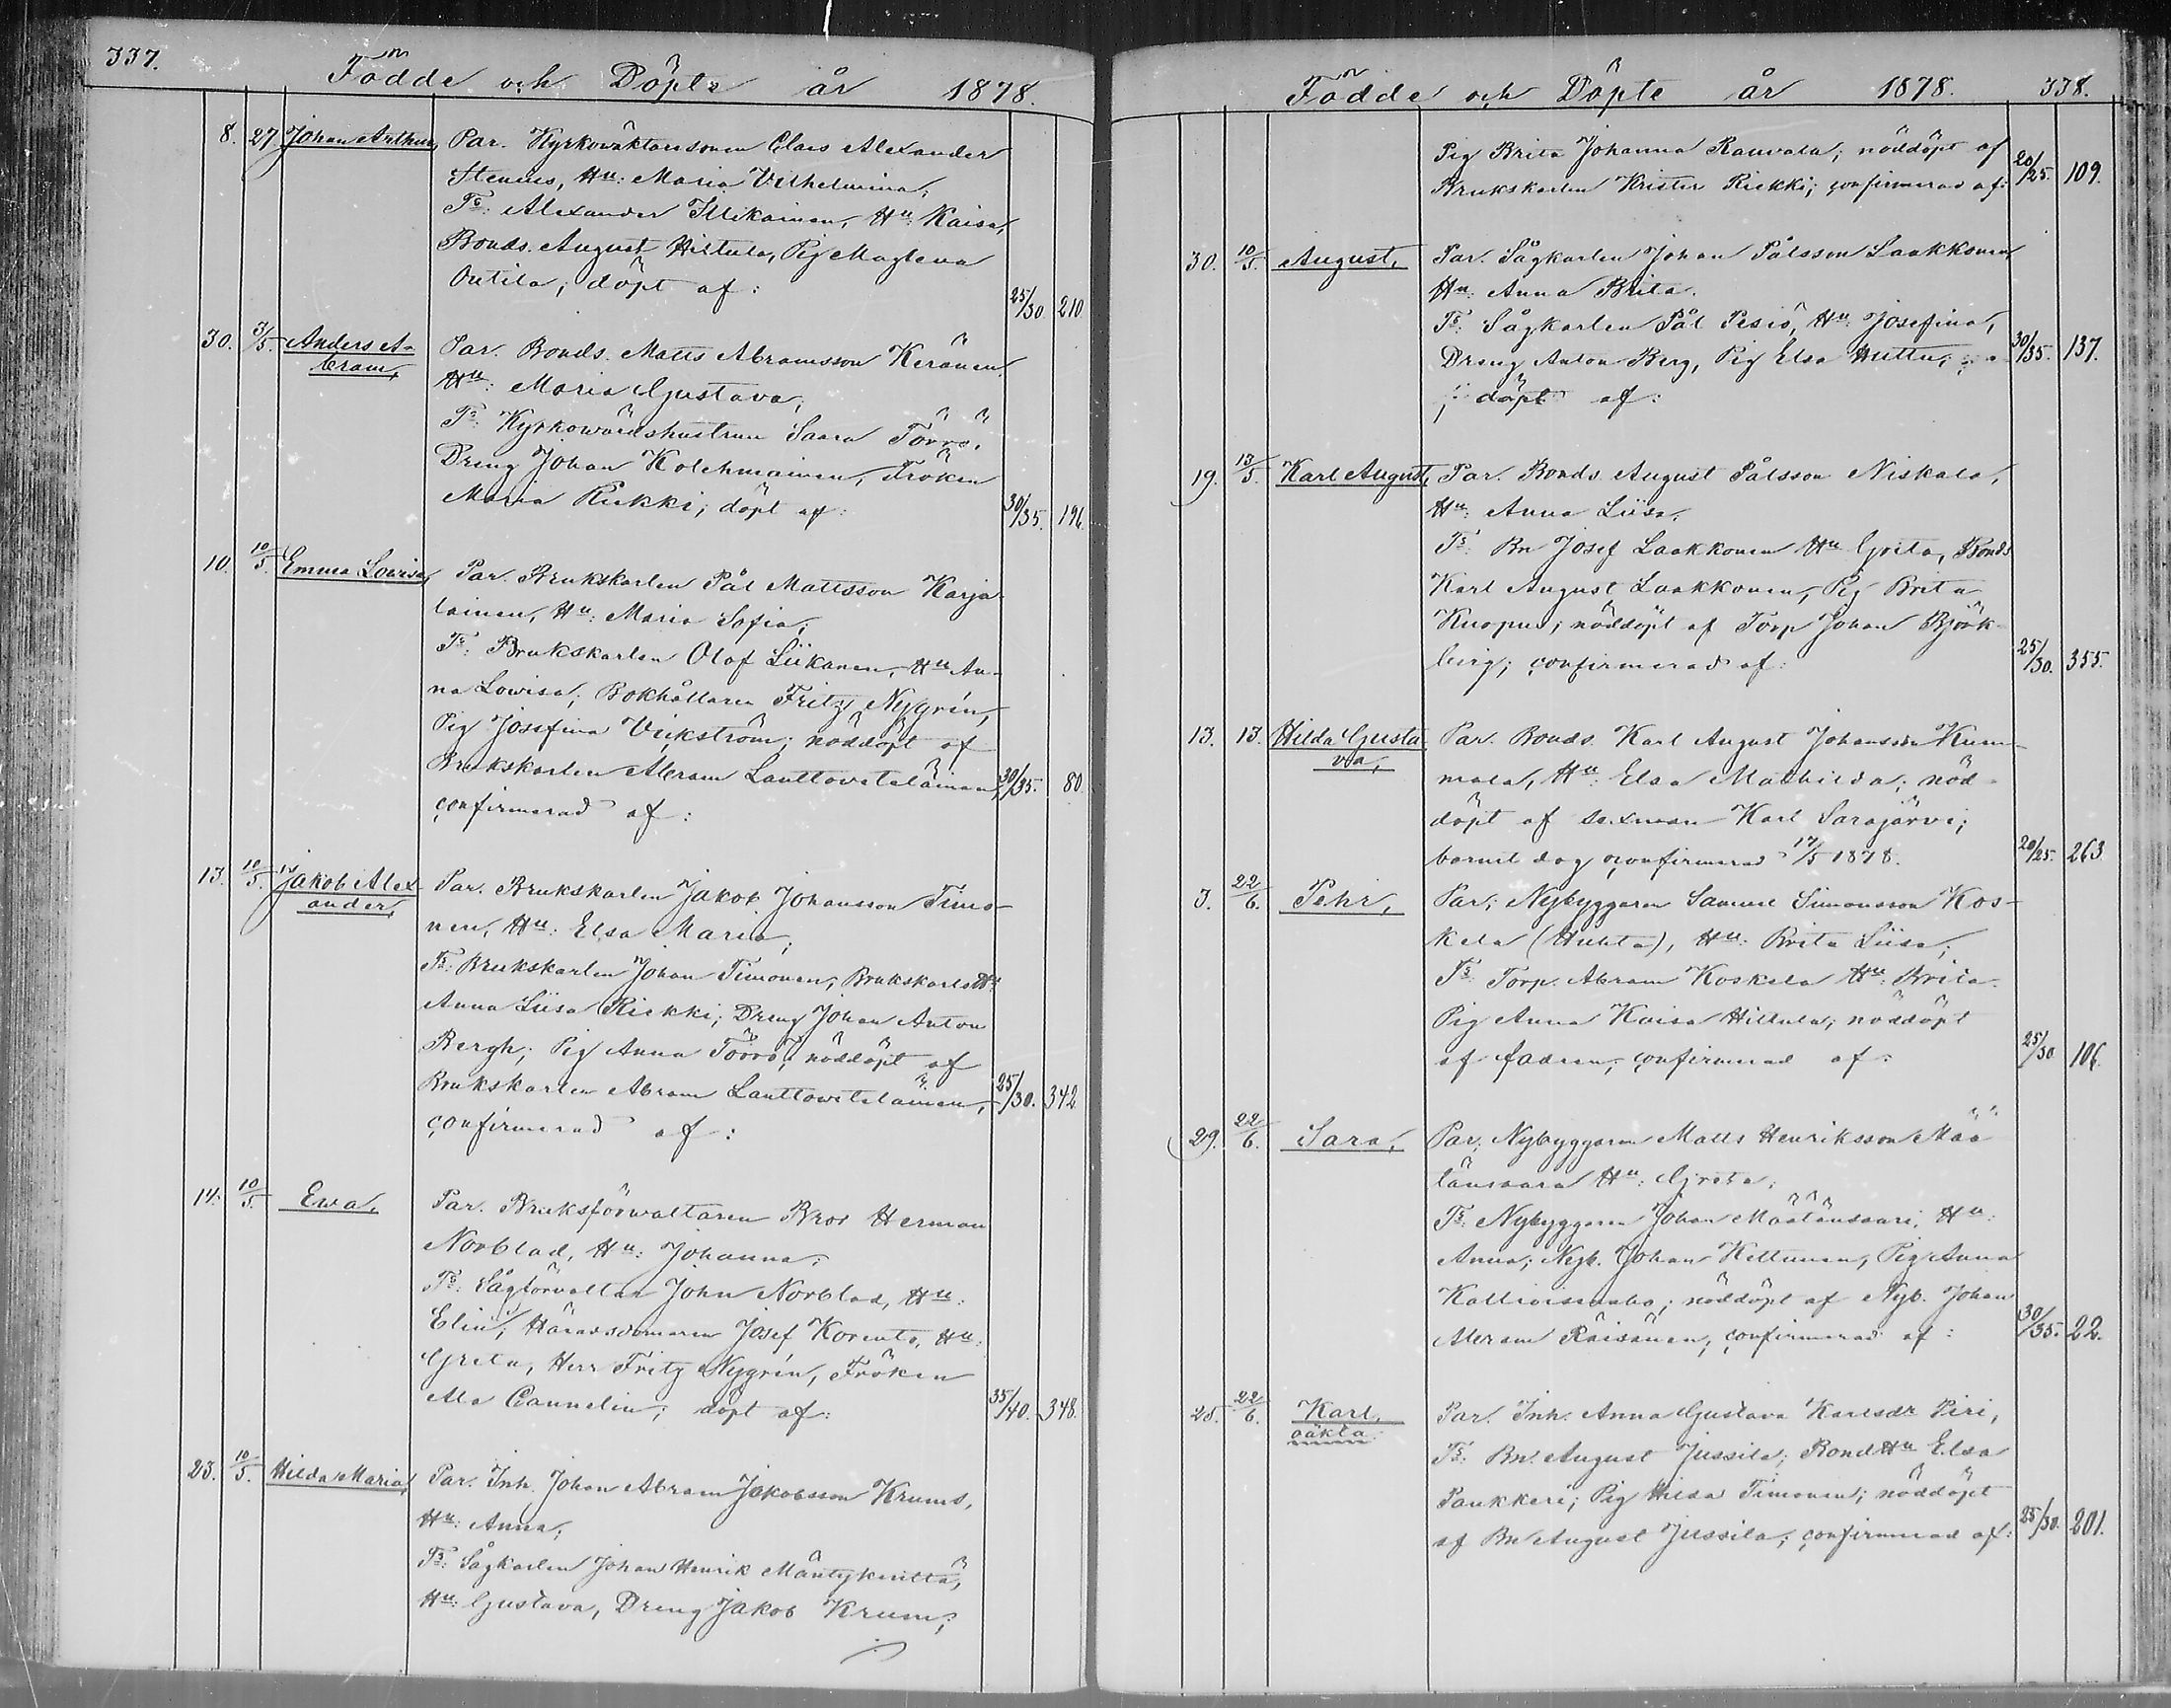 337.
Födde och Döpte år 1878.
8. 27 Johan Arthur, Par. Kyrkowäktaresonen Claes Alexander
Stenius, Hu: Maria Vilhelmina;
Ts: Alexander Illikainen, Hu: Kaisa,
Bonds. August Hiltula, Pig Maglena
Outila; döpt af: 25/30. 210
30. 3/5. Anders A- Par. Bonds. Matts Abramsson Keränen.
bram, Hu: Maria Gustava;
Ts: Kyrkowärdshustrun Saara Törrö,
Dreng Johan Kolehmainen, Fröken
Maria Riekki; döpt af: 30/35. 196.
10. 10/5. Emma Lowisa, Par. Brukskarlen Pål Mattsson Karja-
lainen, Hu: Maria Sofia;
Ts: Brukskarlen Olof Liikanen, Hu An-
na Lowisa; Bokhållaren Fritz Nygrén,
Pig Josefina Vickström; nöddöpt af
Brukskarlen Abram Lauttowetelainen, 30/35. 80.
confirmerad af:
13. 10/5. Jakob Alex- Par. Brukskarlen Jakob Johansson Timo-
ander, nen, Hu: Elsa Maria;
Ts: Brukskarlen Johan Timonen, Brukskarls Hu:
Anna Liisa Riekki; Dreng Johan Anton
Bergh; Pig Anna Törrö; nöddöpt af
Brukskarlen Abram Lauttowetelainen, 25/30. 342
confirmerad af:
14. 10/5. Ewa, Par. Bruksförwaltaren Bror Herman
Norblad, Hu: Johanna;
Ts: Sågförvaltar John Norblad, Hu:
Elin; Häradsdomaren Josef Korento, Hu:
Greta, Herr Fritz Nygrén, Fröken
Ala Cannelin; döpt af: 35/40. 348.
23. 10/5. Hilda Maria, Par. Inh. Johan Abram Jakobsson Krums,
Hu: Anna;
Ts: Sågkarlen Johan Henrik Mäntykenttä,
Hu: Gustava, Dreng Jakob Krum;
Födde och Döpte år 1878. 338.
Pig Brita Johanna Rauvala; nöddöpt af
Brukskarlen Krister Riekki; confirmerad af: 20/25. 109.
30. 10/5. August, Par. Sågkarlen Johan Pålsson Laakkonen,
Hu: Anna Brita.
Ts: Sågkarlen Pål Pesiö, Hu: Josefina,
Dreng Anton Berg, Pig Elsa Huttu; 30/35. 137.
; döpt af:
19. 13/5. Karl August, Par. Bonds August Pålsson Niskala,
Hu: Anna Liisa;
Ts: Bn Josef Laakkonen Hu Greta, Bonds
Karl August Laakkonen, Pig Brita
Kuopus; nöddöpt af Torp Johan Björk-
berg; confirmerad af: 25/30. 355.
13. 13. Hilda Gusta- Par. Bonds. Karl August Johansson Kum-
va, mala, Hu: Elsa Mathilda; nöd-
döpt af sexman Karl Sarajärvi;
barnet dog oconfirmerad 17/5 1878. 20/25. 263
3. 22/6. Pehr, Par; Nybyggaren Samuel Simonsson Kos-
kela (Huhta), Hu: Brita Liisa;
Ts Torp. Abram Koskela Hu: Brita.
Pig Anna Kaisa Hiltula; nöddöpt
af fadren; confirmerad af: 25/30 106.
29. 22/6. Sara, Par; Nybyggaren Matts Henriksson Mää-
tänvaara Hu: Greta;
Ts: Nybyggaren Johan Määtänvaari, Hu:
Anna; Nyb. Johan Keltunen, Pig Anna
nöddöpt af Nyb. Johan
Abram Räisänen, confirmerad af: 30/35. 22.
25. 22/6. Karl, Par. Inh. Anna Gustava Karlsdr Piri,
oäkta Ts: Bn. August Jussila; Bond Hu Elsa
Paukkeri; Pig Hilda Timonen; nöddöpt
af Bn August Jussila; confirmerad af: 25/30. 201.